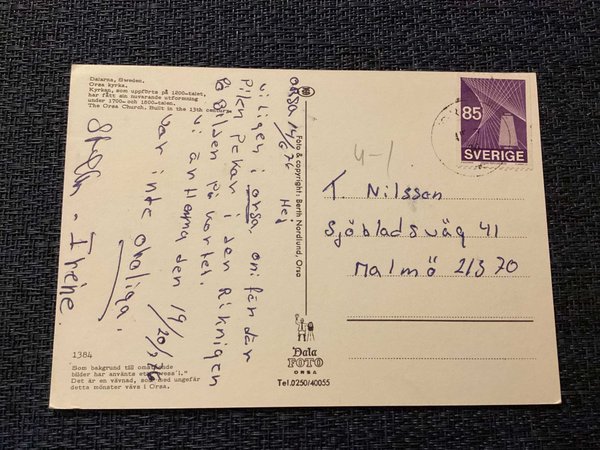 Dalarna, Sweden.
Orsa kyrka.
Kyrkan, som uppförts på 1200-talet,
har fått sin nuvarande utformning
under 1700- och 1800-talen.
The Orsa Church. Built in the 13th century
ORSA 14/6 76
Hej
Vi ligger i orsa, om får där
Pilen Pekar i den Rikningen
på Bilden på kortet.
Vi är Hemma den 19/20/
var inte oroliga.
Irene.
1384
Som bakgrund till
bilder har använts
Det är en vävnad, som med ungefär
detta mönster vävs i Orsa.
Foto & copyright: Berth Nordlund, Orsa
Dala
FOTO
ORSA
Tel.0250/40055
85
SVERIGE
4-1
T. Nilsson
Sjöbladsväg 41
Malmö 21370